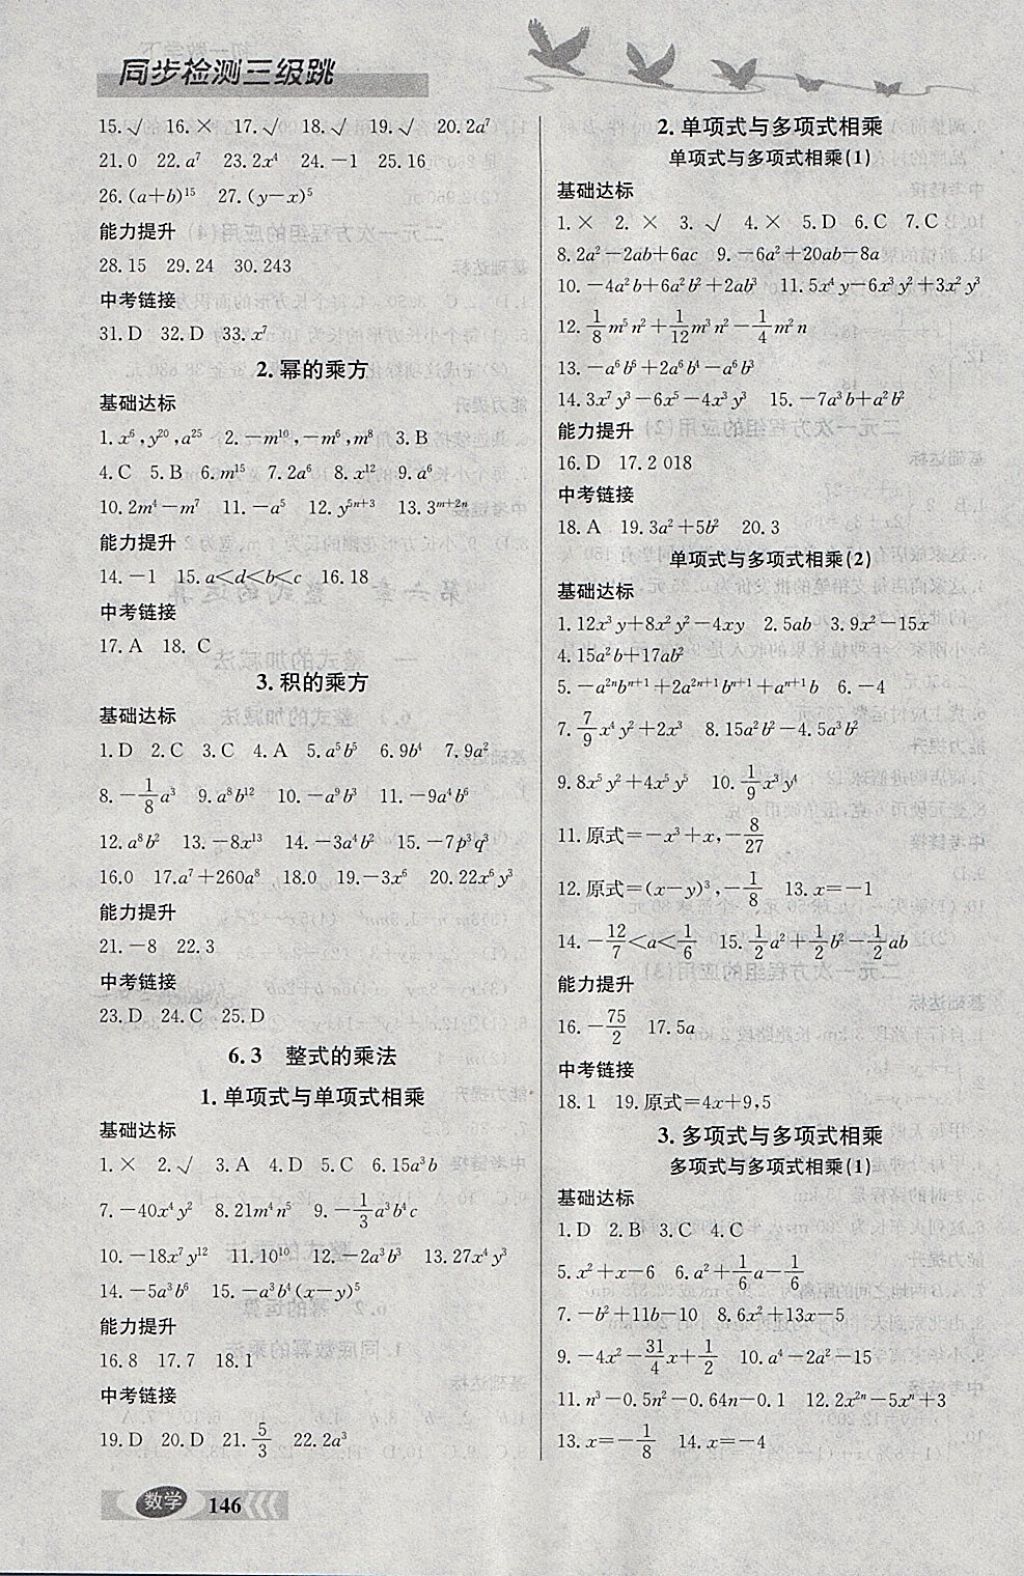 同步检测三级跳
15.√ 16.× 17.√ 18.√ 19.√ 20.2a⁷
21.0 22.a⁷ 23.2x⁴ 24.-1 25.16
26.(a+b)¹⁵ 27.(y-x)⁵
能力提升
28.15 29.24 30.243
中考链接
31.D 32.D 33.x⁷
2.幂的乘方
基础达标
1.x⁶,y²⁰,a²⁵ 2.-m¹⁰,-m⁶,m⁸ 3.B
4.C 5.B 6.m¹⁵ 7.2a⁶ 8.x¹² 9.a⁶
10.2m⁴-m⁷ 11.-a⁵ 12.y⁵ⁿ⁺³ 13.3ᵐ⁺²ⁿ
能力提升
14.-1 15.a<d<b<c 16.18
中考链接
17.A 18.C
3.积的乘方
基础达标
1.D 2.C 3.C 4.A 5.a⁵b⁵ 6.9b⁴ 7.9a²
8.-1/8a³ 9.a⁸b¹² 10.-a⁹b³ 11.-9a⁴b⁶
12.a⁸b² 13.-8x¹³ 14.-3a⁴b² 15.-7p³q³
16.0 17.a⁷+260a⁸ 18.0 19.-3x⁶ 20.22x⁶y³
能力提升
21.-8 22.3
中考链接
23.D 24.C 25.D
6.3 整式的乘法
1.单项式与单项式相乘
基础达标
1.× 2.√ 3.A 4.D 5.C 6.15a³b
7.-40x⁴y² 8.21m⁴n⁵ 9.-1/3a³b⁴c
10.-18x⁷y¹² 11.10¹⁰ 12.-2a³b³ 13.27x⁴y³
14.-5a³b⁶ 15.-a³b⁴(x-y)⁵
能力提升
16.8 17.7 18.1
中考链接
19.D 20.D 21.5/3 22.2a³
数学 146
2.单项式与多项式相乘
单项式与多项式相乘(1)
基础达标
1.× 2.× 3.√ 4.× 5.D 6.C 7.C
8.2a²-2ab+6ac 9.-6a²+20ab-8a
10.-4a²b+6a²b²+2ab³ 11.5x⁴y-6x³y²+3x²y³
12.1/8m⁵n²+1/12m³n²-1/4m²n
13.-a⁶b⁶+2a⁶b⁴-a⁶b³
14.3x⁷y³-6x⁵-4x³y³ 15.-7a³b+a²b²
能力提升
16.D 17.2 018
中考链接
18.A 19.3a²+5b² 20.3
单项式与多项式相乘(2)
基础达标
1.12x³y+8x²y²-4xy 2.5ab 3.9x²-15x
4.15a²b+17ab²
5.-a²ⁿbⁿ⁺¹+2a²ⁿ⁺¹bⁿ⁺¹+aⁿ⁺¹b 6.-4
7.7/9x⁴y²+2x³ 8.15a²b²-4.5a³b²
9.8x⁵y²+4x⁵y⁵ 10.1/9x³y⁴
11.原式=-x³+x,-8/27
12.原式=(x-y)³,-1/8 13.x=-1
14.-12/7<a<1/6 15.1/2a²+1/2b²-1/2ab
能力提升
16.-75/2 17.5a
中考链接
18.1 19.原式=4x+9,5
3.多项式与多项式相乘
多项式与多项式相乘(1)
基础达标
1.D 2.B 3.C 4.C
5.x²+x-6 6.a²+1/6a-1/6
7.-b²+11b-10 8.6x²+13x-5
9.-4x²-31/4x+1/2 10.a⁴-2a²-15
11.n³-0.5n²-0.64n-0.1 12.2x²ⁿ-5xⁿ+3
13.x=-1/8 14.x=-4